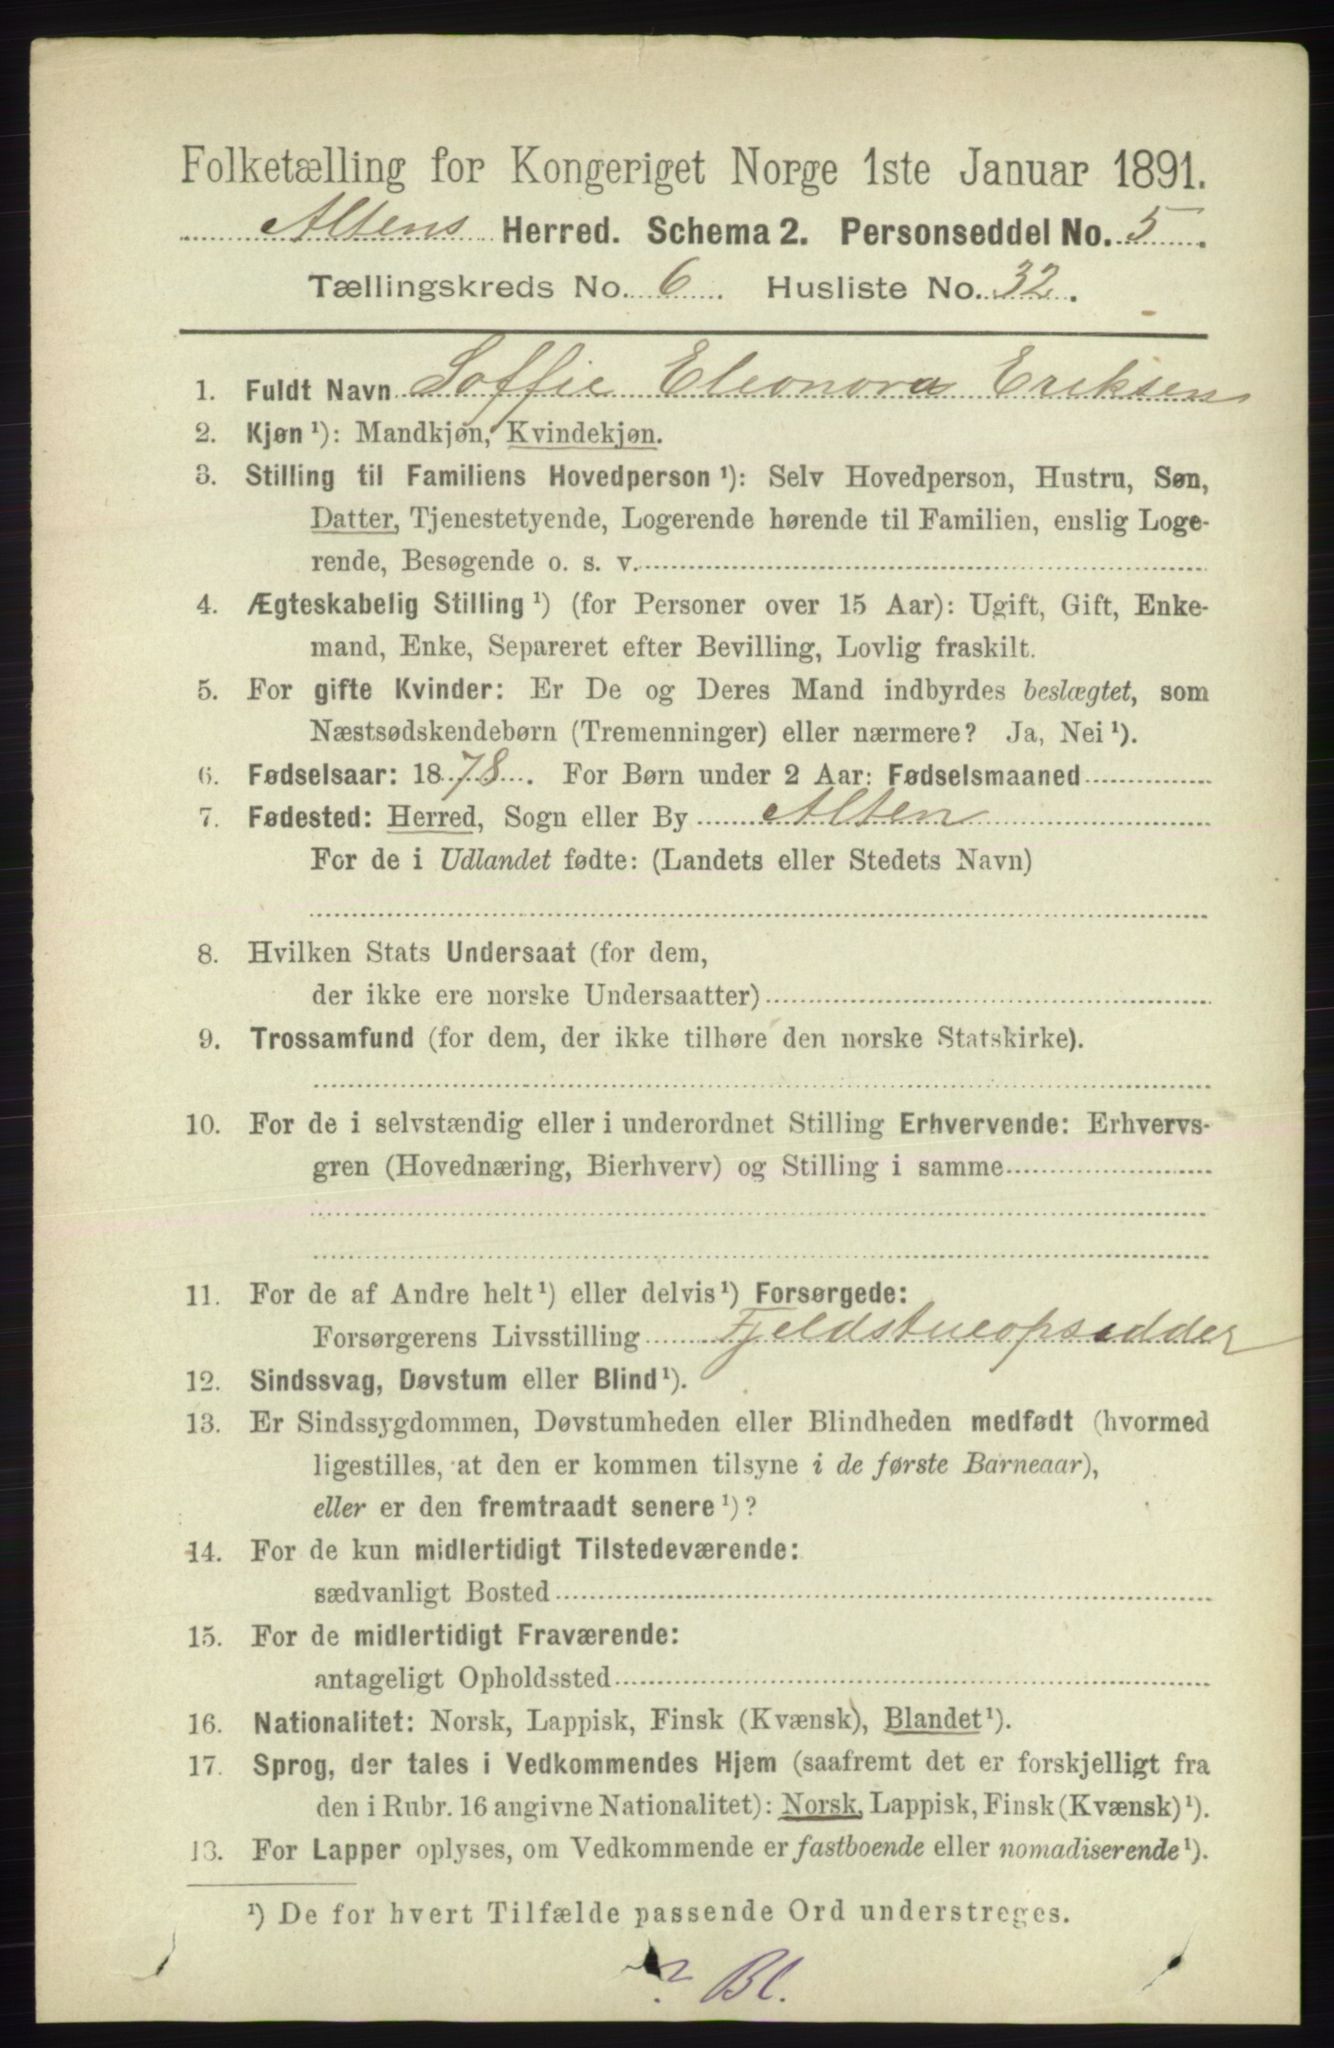 Folketælling for Kongeriget Norge 1ste Januar 1891.
Altens Herred. Schema 2. Personseddel No. 5.
Tællingskreds No. 6. Husliste No. 32.
1. Fuldt Navn Soffie Eleonora Eriksen
2. Kjøn ¹): Mandkjøn, Kvindekjøn.
3. Stilling til Familiens Hovedperson ¹): Selv Hovedperson, Hustru, Søn,
Datter, Tjenestetyende, Logerende hørende til Familien, enslig Loge-
rende, Besøgende o. s. v.
4. Ægteskabelig Stilling ¹) (for Personer over 15 Aar): Ugift, Gift, Enke-
mand, Enke, Separeret efter Bevilling, Lovlig fraskilt.
5. For gifte Kvinder: Er De og Deres Mand indbyrdes beslægtet, som
Næstsødskendebørn (Tremenninger) eller nærmere? Ja, Nei ¹).
6. Fødselsaar: 1878. For Børn under 2 Aar: Fødselsmaaned
7. Fødested: Herred, Sogn eller By Alten
For de i Udlandet fødte: (Landets eller Stedets Navn)
8. Hvilken Stats Undersaat (for dem,
der ikke ere norske Undersaatter)
9. Trossamfund (for dem, der ikke tilhøre den norske Statskirke).
10. For de i selvstændig eller i underordnet Stilling Erhvervende: Erhvervs-
gren (Hovednæring, Bierhverv) og Stilling i samme
11. For de af Andre helt ¹) eller delvis ¹) Forsørgede:
Forsørgerens Livsstilling Fjeldstueopsidder
12. Sindssvag, Døvstum eller Blind ¹).
13. Er Sindssygdommen, Døvstumheden eller Blindheden medfødt (hvormed
ligestilles, at den er kommen tilsyne i de første Barneaar),
eller er den fremtraadt senere ¹)?
14. For de kun midlertidigt Tilstedeværende:
sædvanligt Bosted
15. For de midlertidigt Fraværende:
antageligt Opholdssted
16. Nationalitet: Norsk, Lappisk, Finsk (Kvænsk), Blandet ¹).
17. Sprog, der tales i Vedkommendes Hjem (saafremt det er forskjelligt fra
den i Rubr. 16 angivne Nationalitet): Norsk, Lappisk, Finsk (Kvænsk) ¹).
13. For Lapper oplyses, om Vedkommende er fastboende eller nomadiserende ¹).
¹) De for hvert Tilfælde passende Ord understreges.
? Bl.